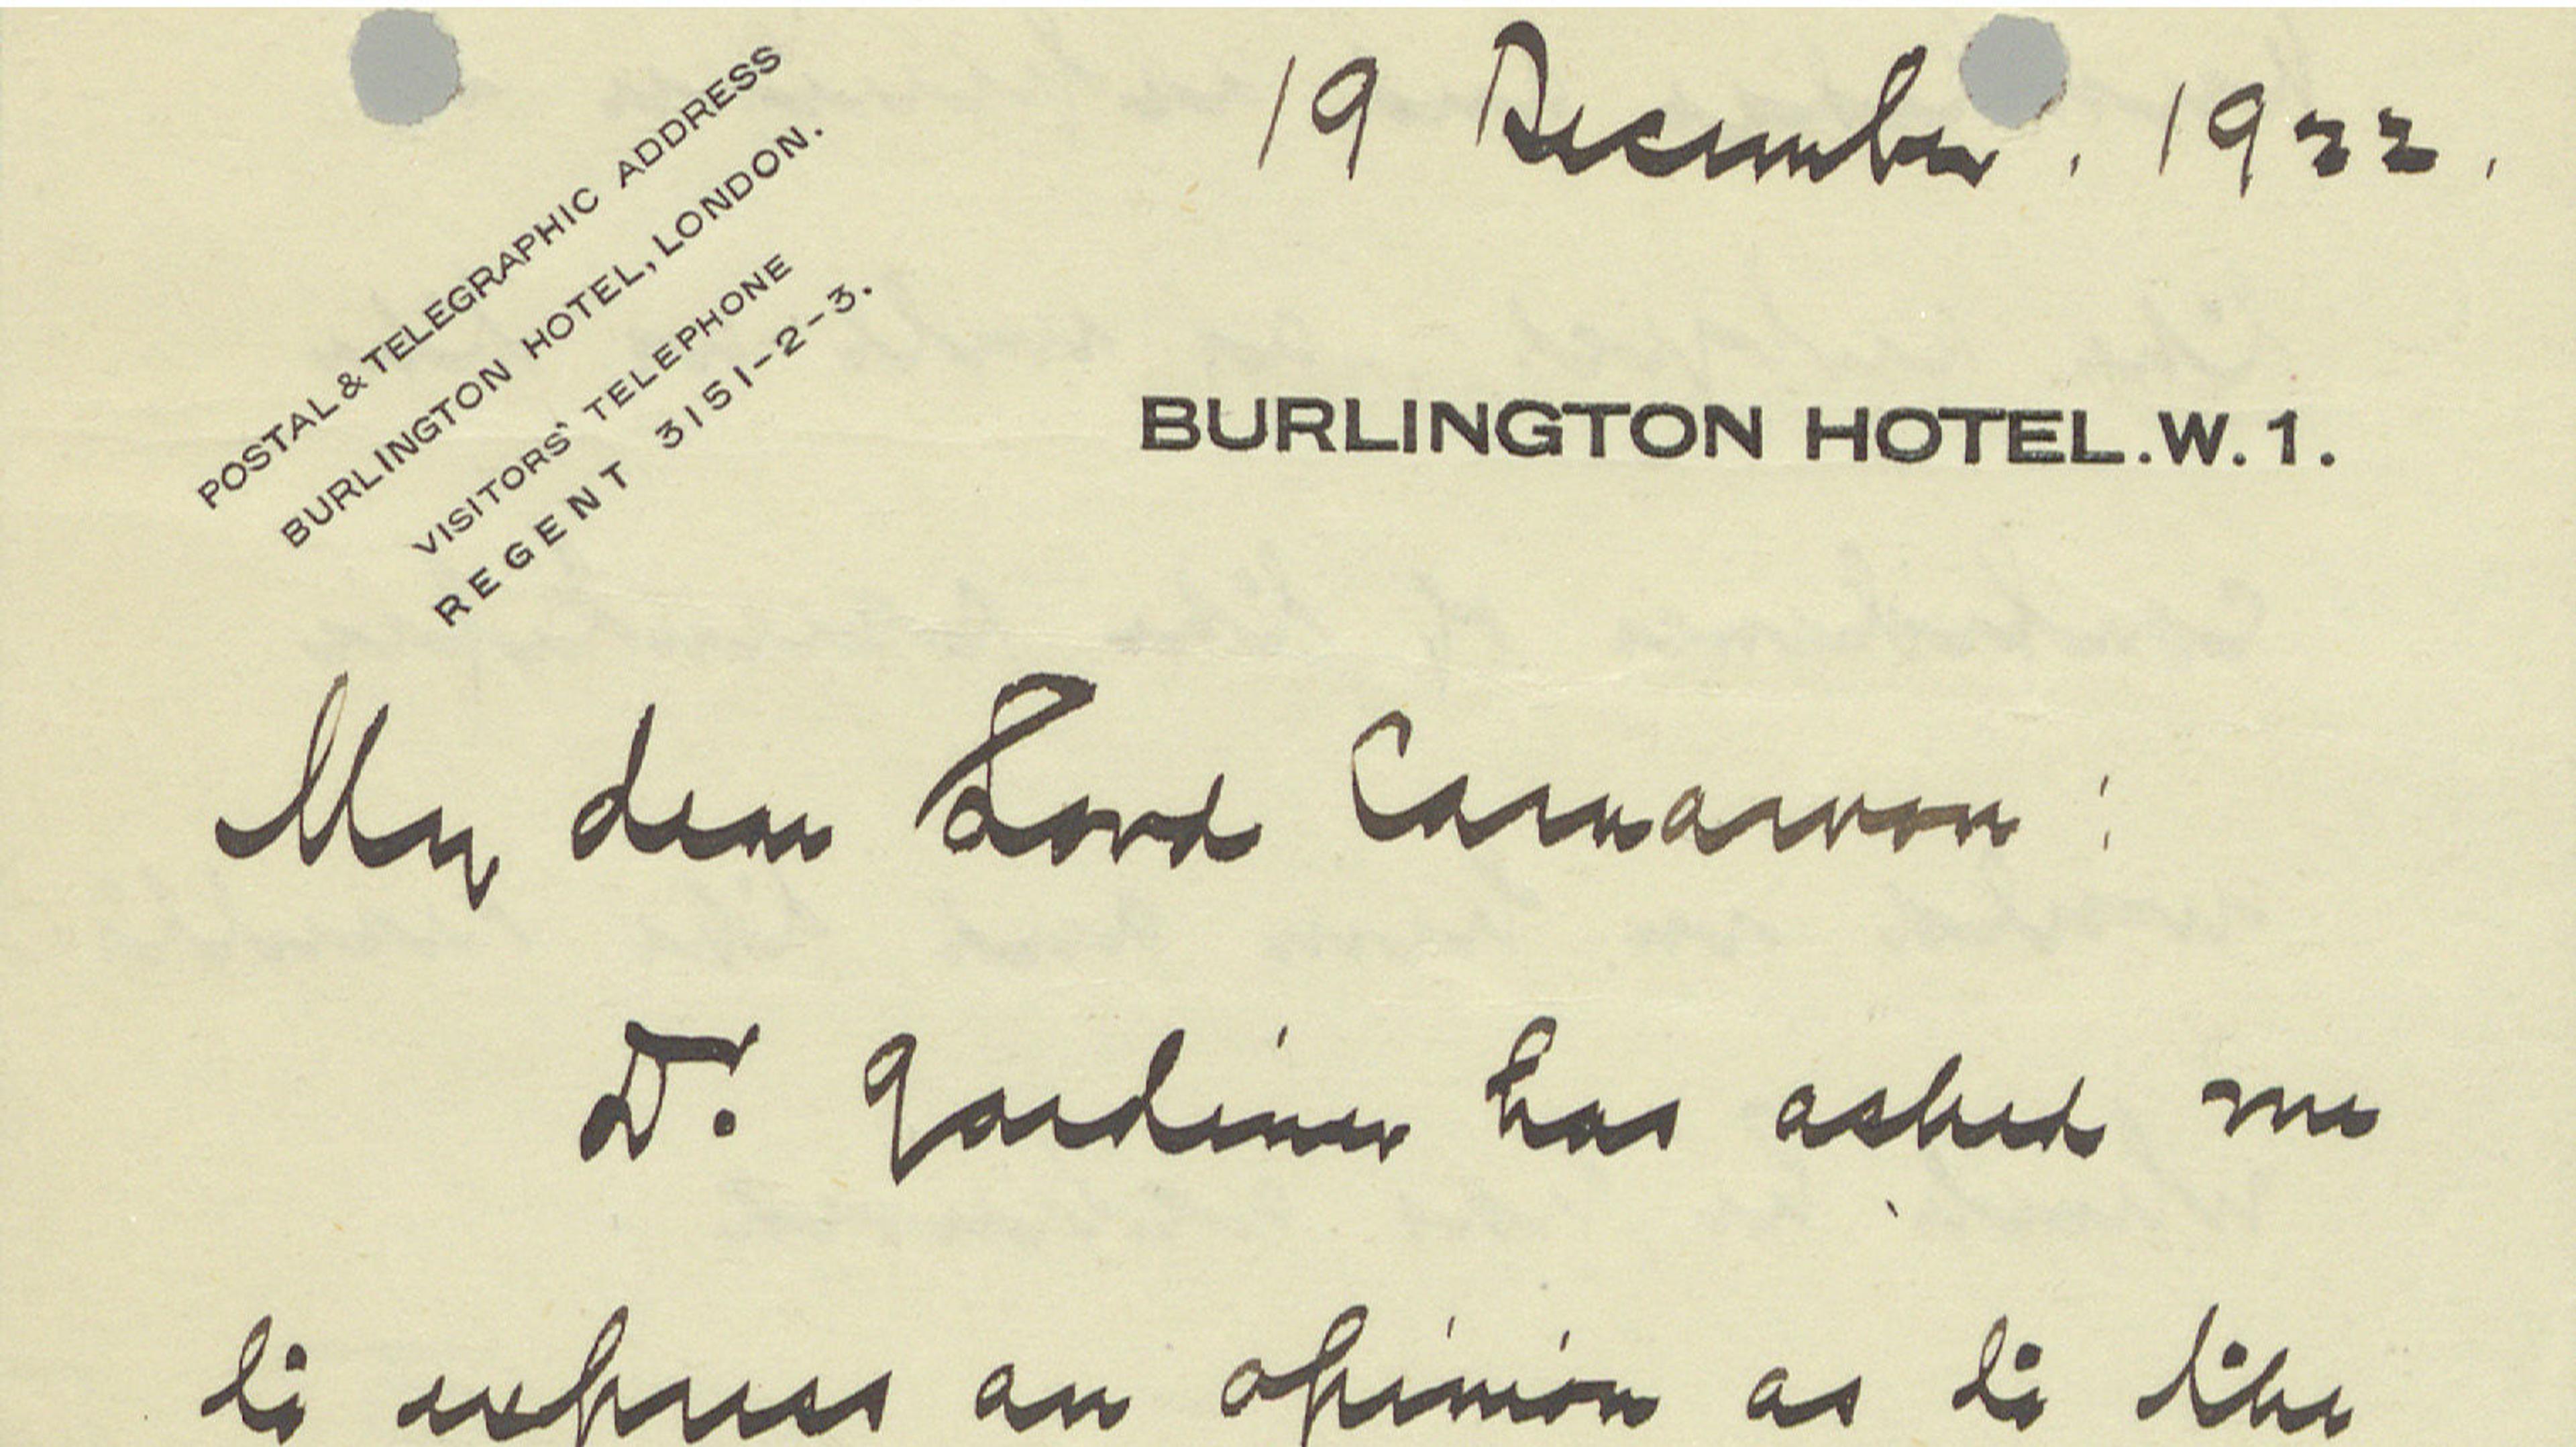 POSTAL & TELEGRAPHIC ADDRESS
BURLINGTON HOTEL, LONDON.
VISITORS' TELEPHONE
REGENT 3151-2-3.
19 December. 1922.
BURLINGTON HOTEL. W. 1.
My dear Lord Carnarvon :
Dr. Gardiner has asked me
to express an opinion as to the